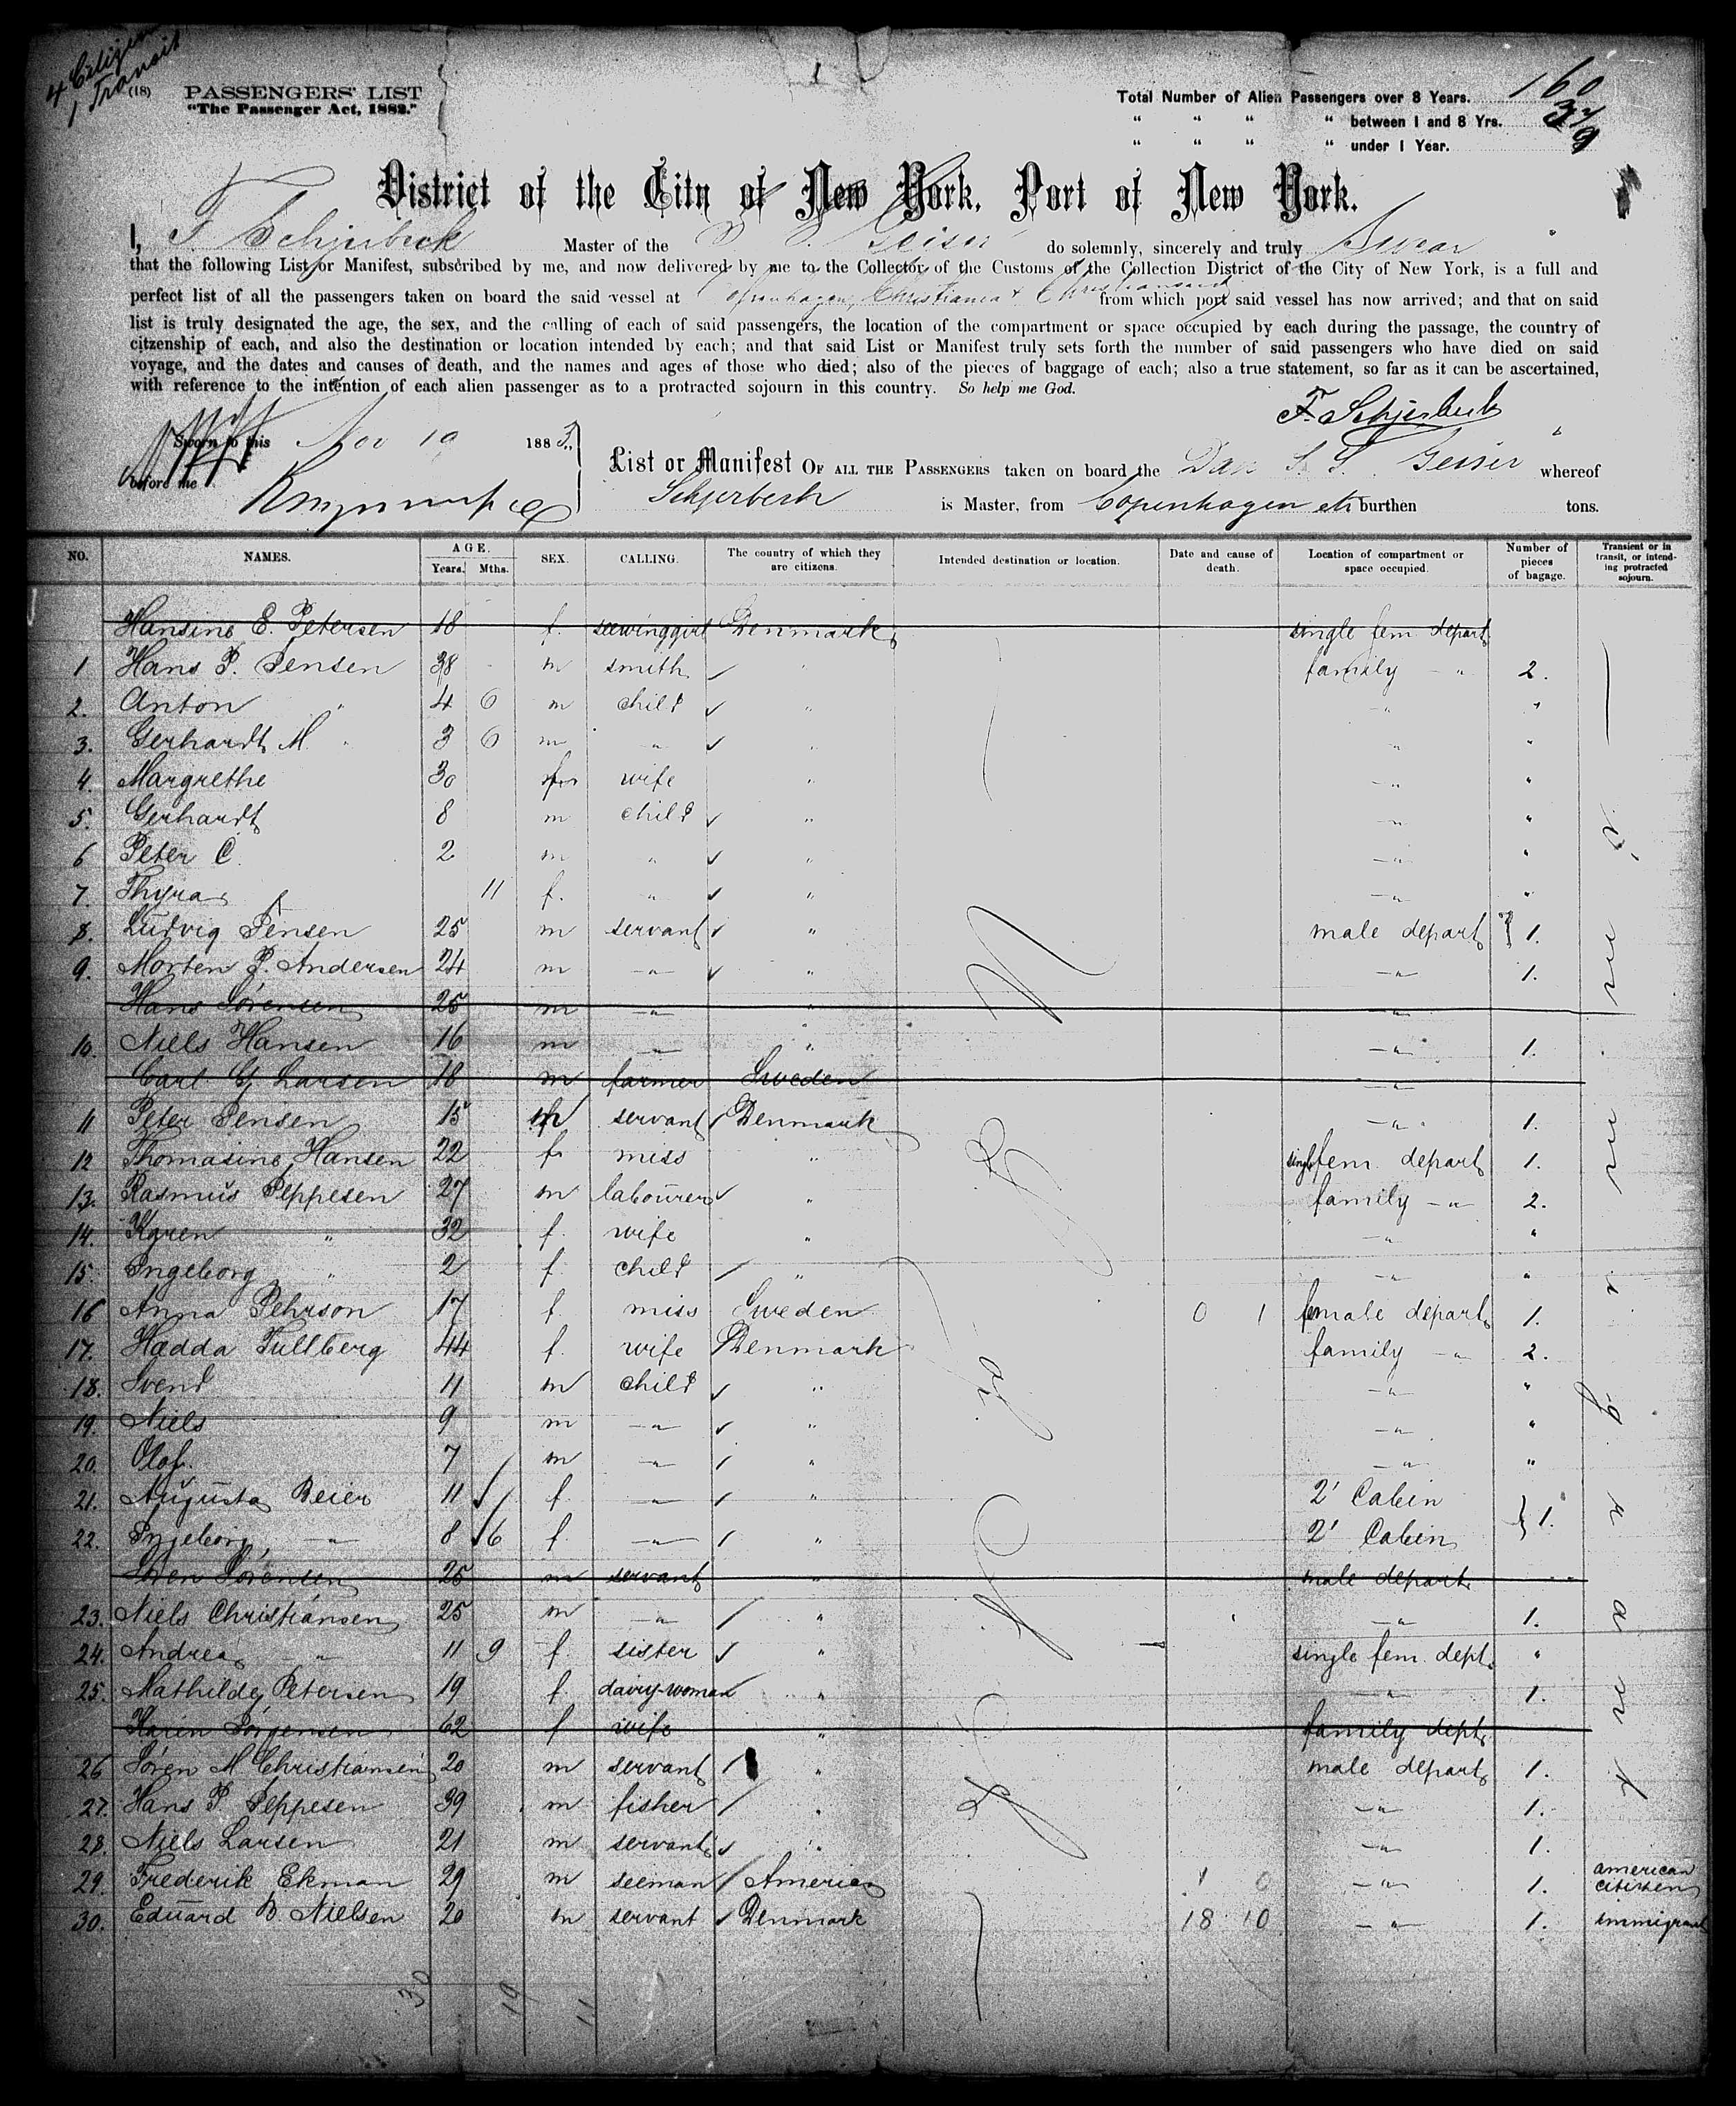 4 Citizens
1 Transit
(18) PASSENGERS' LIST
"The Passenger Act, 1882."
1
Total Number of Alien Passengers over 8 Years. 160
" " " " between 1 and 8 Yrs. 32
" " " " under 1 Year. 9
District of the City of New York, Port of New York.
I, F. Schjerbeck Master of the S. S. Geiser do solemnly, sincerely and truly Swear
that the following List or Manifest, subscribed by me, and now delivered by me to the Collector of the Customs of the Collection District of the City of New York, is a full and
perfect list of all the passengers taken on board the said vessel at Copenhagen, Christiania & Christiansand from which port said vessel has now arrived; and that on said
list is truly designated the age, the sex, and the calling of each of said passengers, the location of the compartment or space occupied by each during the passage, the country of
citzenship of each, and also the destination or location intended by each; and that said List or Manifest truly sets forth the number of said passengers who have died on said
voyage, and the dates and causes of death, and the names and ages of those who died; also of the pieces of baggage of each; also a true statement, so far as it can be ascertained,
with reference to the intention of each alien passenger as to a protracted sojourn in this country. So help me God.
F. Schjerbeck
Sworn to this Nov 19 1883.
before me
List or Manifest OF ALL THE PASSENGERS taken on board the Dan S. S. Geiser whereof
Schjerbeck is Master, from Copenhagen etc burthen tons.
NO. NAMES. AGE. Years. Mths. SEX. CALLING. The country of which they are citizens. Intended destination or location. Date and cause of death. Location of compartment or space occupied. Number of pieces of bagage. Transient or in transit, or intending protracted sojourn.
Hansine E. Petersen 18 f. seewinggirl Denmark single fem. depart
1 Hans P. Jensen 38 m smith " family - " 2.
2. Anton " 4 6 m child " - " "
3. Gerhardt M. " 3 6 m " " - " "
4. Margrethe 30 f wife " - " "
5. Gerhardt 8 m child " - " "
6 Peter C. 2 m " " - " "
7. Thyra 11 f. " " - " "
8. Ludvig Jensen 25 m servant " male depart } 1.
9. Morten P. Andersen 24 m - " - " - " - 1.
Hans Sörensen 25 m - " - " - " -
10. Niels Hansen 16 m - " - " - " - 1.
Carl G Larsen 18 m farmer Sweden - " -
11 Peter Jensen 15 m servant Denmark - " - 1.
12 Thomasine Hansen 22 f miss " single fem. depart 1.
13. Rasmus Jeppesen 27 m labourer " family - " - 2.
14. Karen " 32 f. wife " - " - "
15. Ingeborg " 2 f. child " - " - "
16 Anna Pehrson 17 f. miss Sweden 0 1 female depart 1.
17. Hedda Tullberg 44 f. wife Denmark family - " 2.
18. Svend 11 m child " - " - "
19. Niels 9 m - " - " - " - "
20. Olof 7 m - " - " - " - "
21. Augusta Beier 11 f. - " - " 2' Cabin } 1.
22. Ingeborg - " - 8 6 f - " - " 2' Cabin
Sören Sörensen 25 m servant " male depart
23. Niels Christiansen 25 m - " - " - " - 1.
24. Andrea - " - 11 9 f. sister " single fem. dept. "
25. Mathilde Petersen 19 f dairy-woman " - " - 1.
Karen Jörgensen 62 f wife " family dept.
26 Sören M Christiansen 20 m servant " male depart 1.
27. Hans P Jeppesen 39 m fisher " - " - 1.
28. Niels Larsen 21 m servant " - " - 1.
29. Frederik Ekman 29 m seeman America 1 0 - " - 1. american citizen
30. Eduard B. Nielsen 20 m servant Denmark 18 10 - " - 1. immigrant
30 19 11